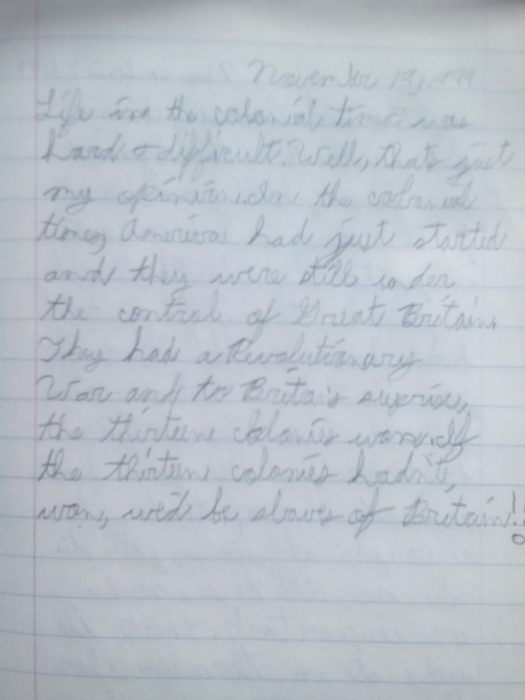 November 19, 1999
Life in the colonial times was
hard & difficult. Well, that's just
my opinion. In the colonial
times, America had just started
and they were still under
the control of Great Britain.
They had a Revolutionary
War and to Britain's suprise,
the thirteen colonies won. If
the thirteen colonies hadn't,
won, we'd be slaves of Britain!!